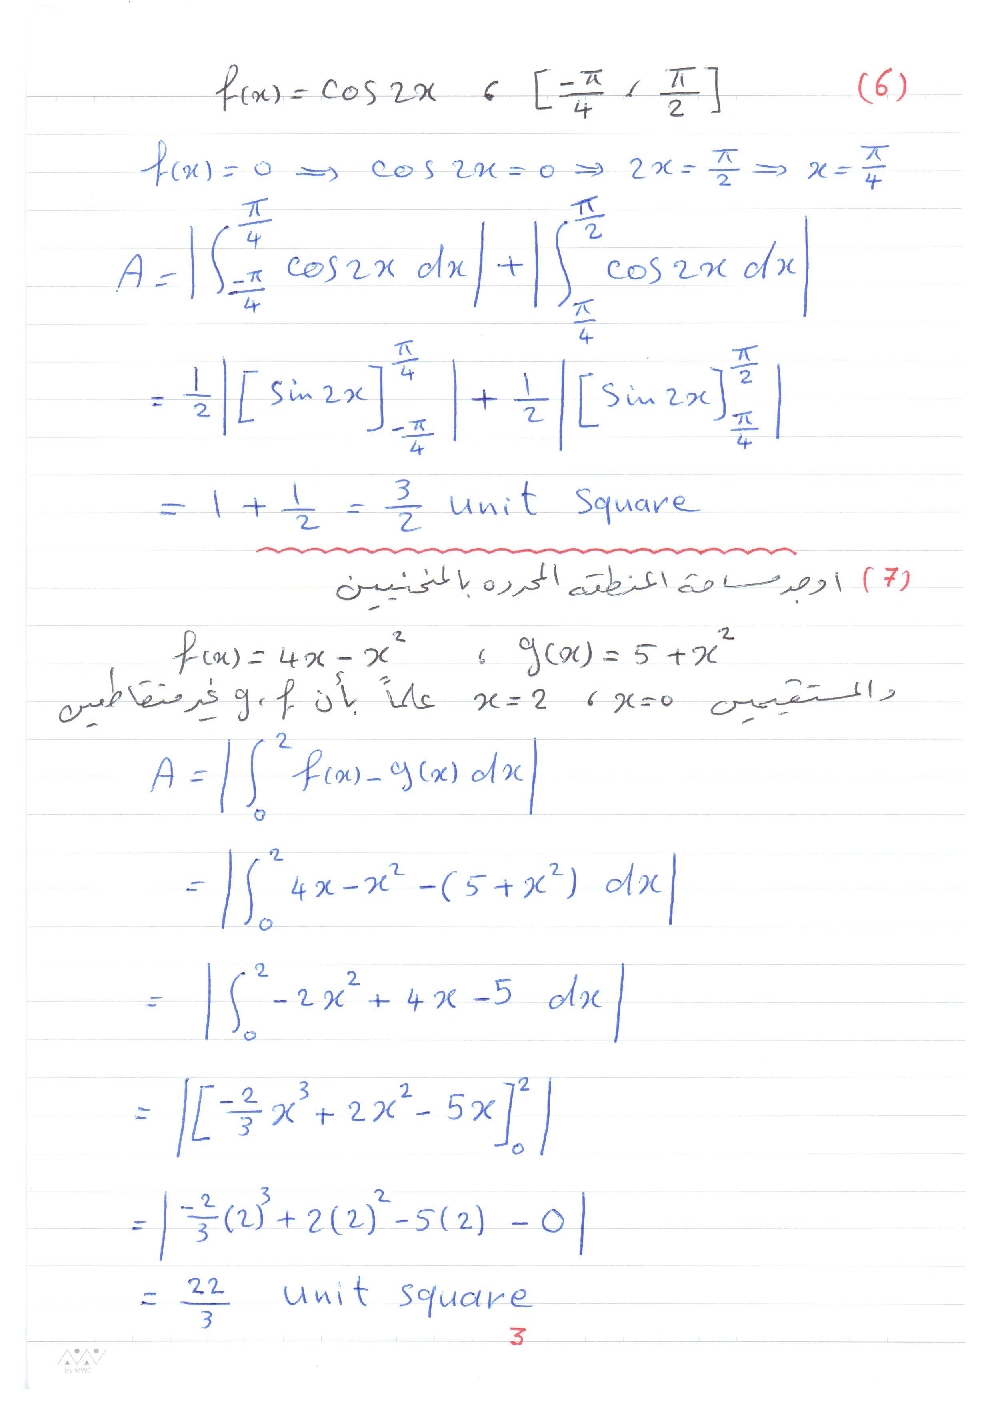 (6) f(x) = cos 2x ، [-π/4 ، π/2]
f(x) = 0 ⇒ cos 2x = 0 ⇒ 2x = π/2 ⇒ x = π/4
A = |∫_{-π/4}^{π/4} cos 2x dx| + |∫_{π/4}^{π/2} cos 2x dx|
= 1/2 |[sin 2x]_{-π/4}^{π/4}| + 1/2 |[sin 2x]_{π/4}^{π/2}|
= 1 + 1/2 = 3/2 unit square
(7) أوجد مساحة المنطقه المحدده بالمنحنيين
f(x) = 4x - x² ، g(x) = 5 + x²
والمستقيمين x=0 ، x=2 علماً بأن g، f غير متقاطعين
A = |∫_0^2 f(x) - g(x) dx|
= |∫_0^2 4x - x² - (5 + x²) dx|
= |∫_0^2 -2x² + 4x - 5 dx|
= |[-2/3 x³ + 2x² - 5x]_0^2|
= |-2/3 (2)³ + 2(2)² - 5(2) - 0|
= 22/3 unit square
3